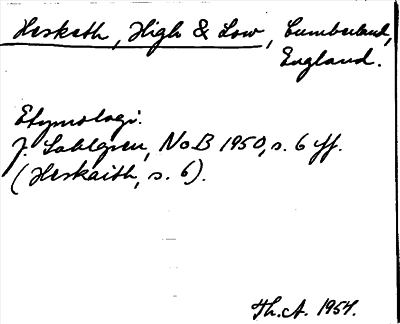 Hesketh, High & Low, Cumberland,
England.
Etymologi.
J. Sahlgren, NoB 1950, s. 6 ff.
(Heskaith, s. 6).
Th. A. 1954.